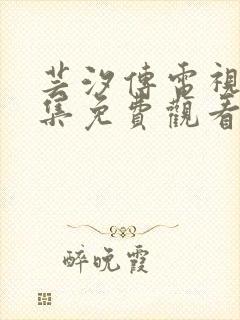 芸汐傳電視
集免費觀看
醉晚霞